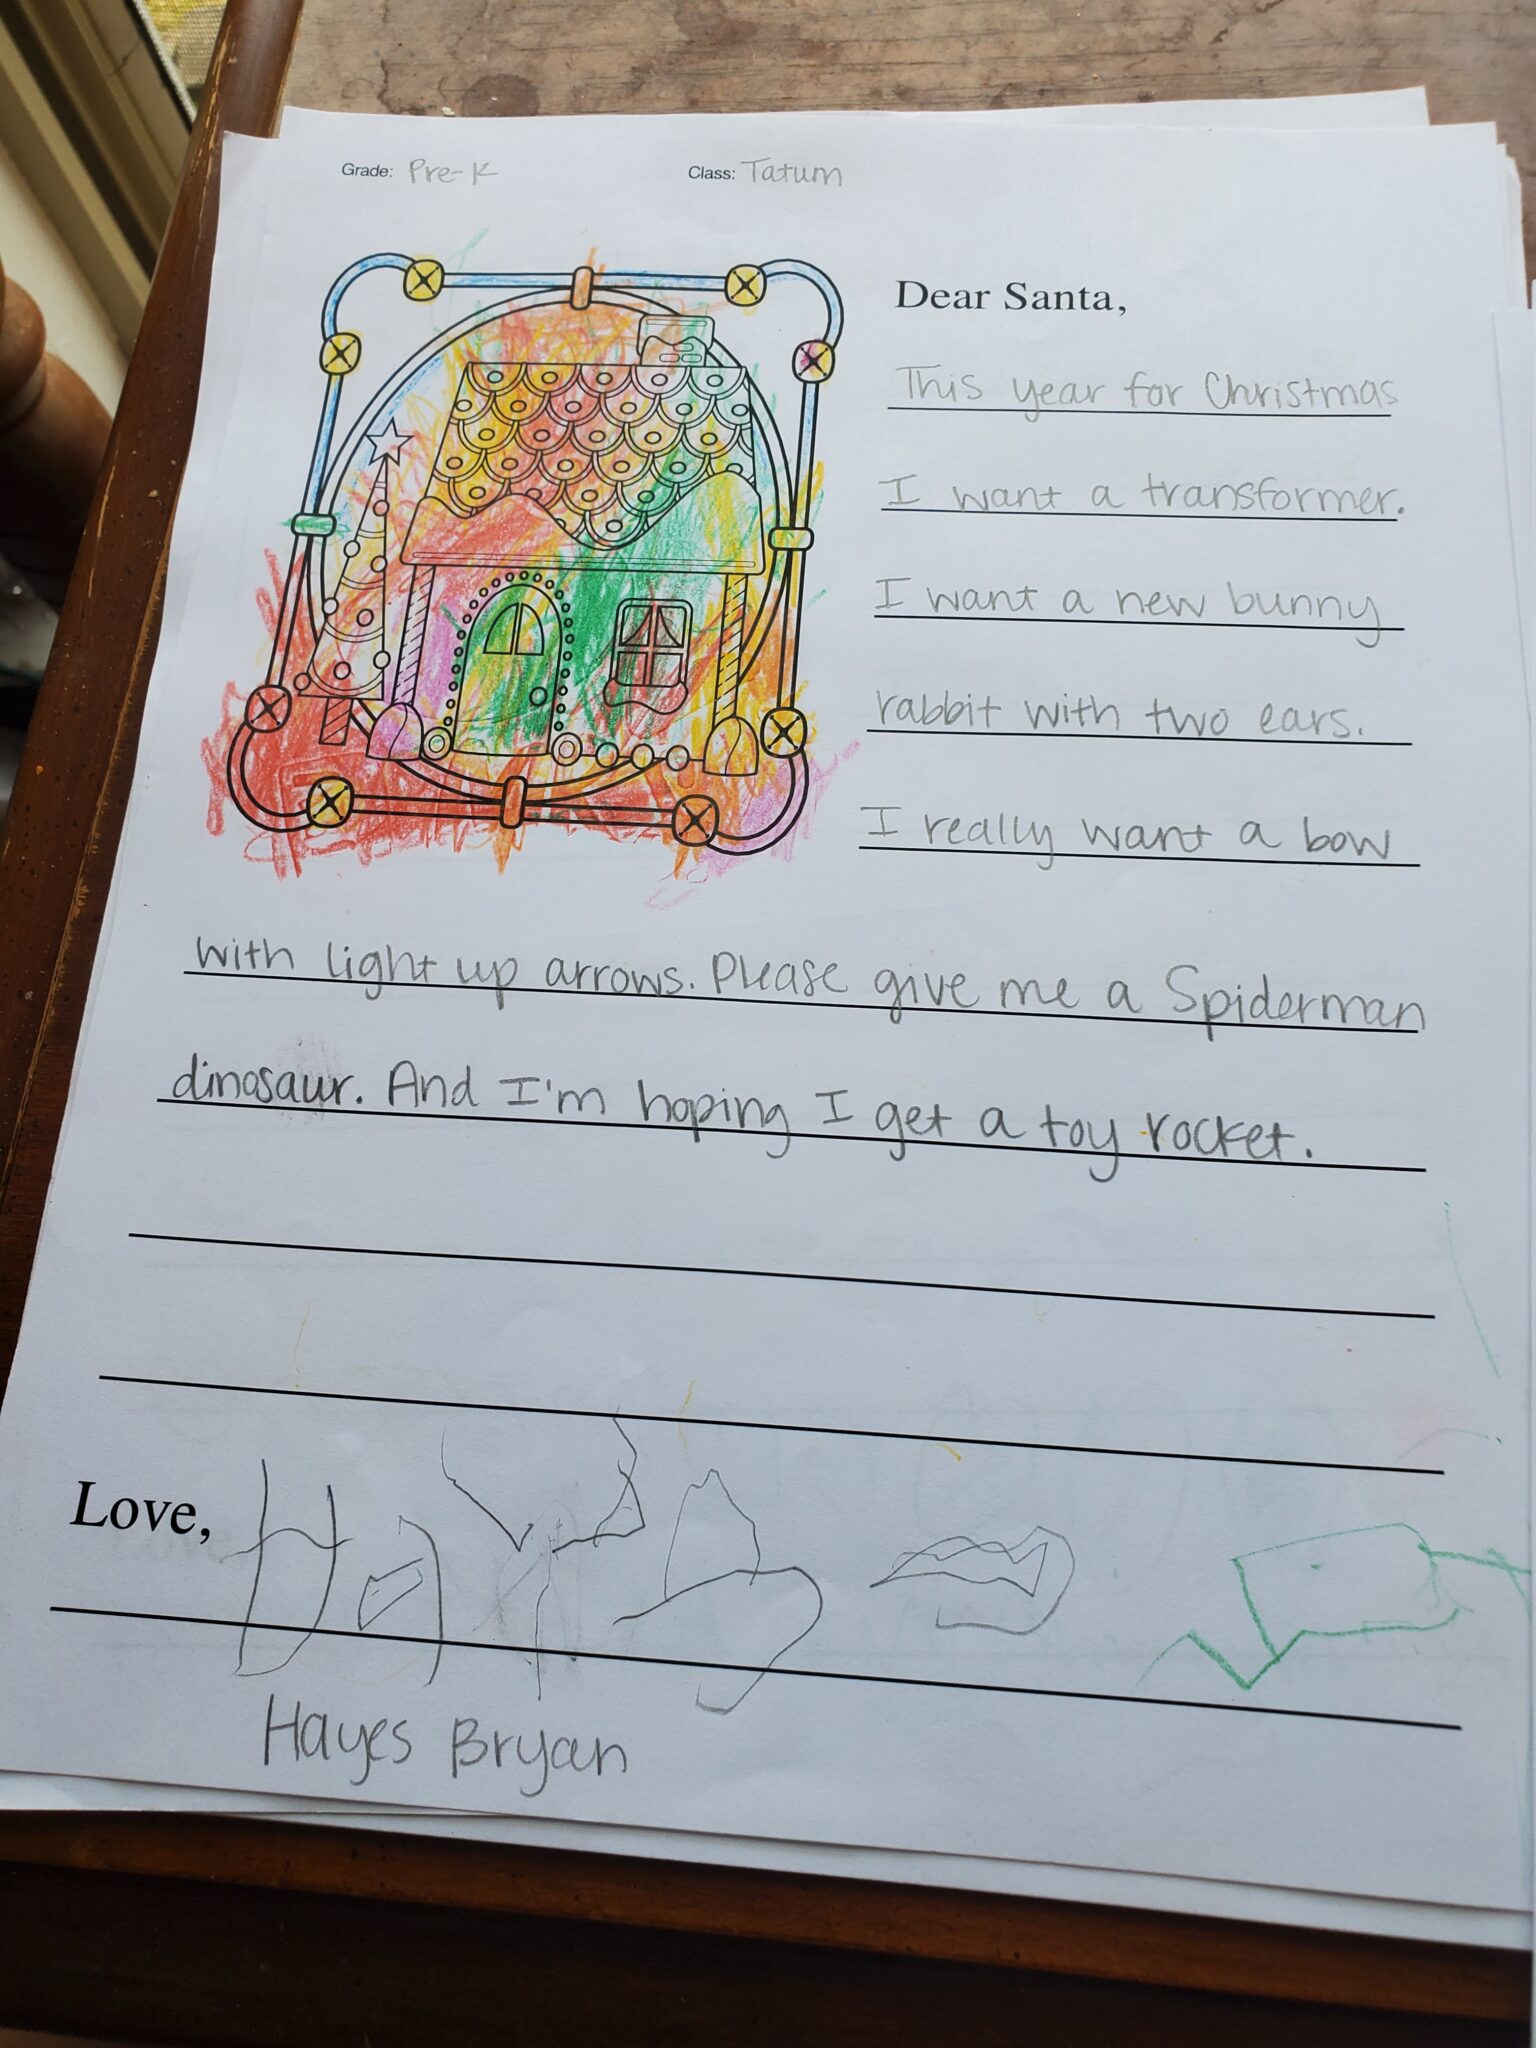 Grade: Pre-K Class: Tatum
Dear Santa,
This year for Christmas
I want a transformer.
I want a new bunny
rabbit with two ears.
I really want a bow
with light up arrows. Please give me a Spiderman
dinosaur. And I'm hoping I get a toy rocket.
Love,
Hayes Bryan